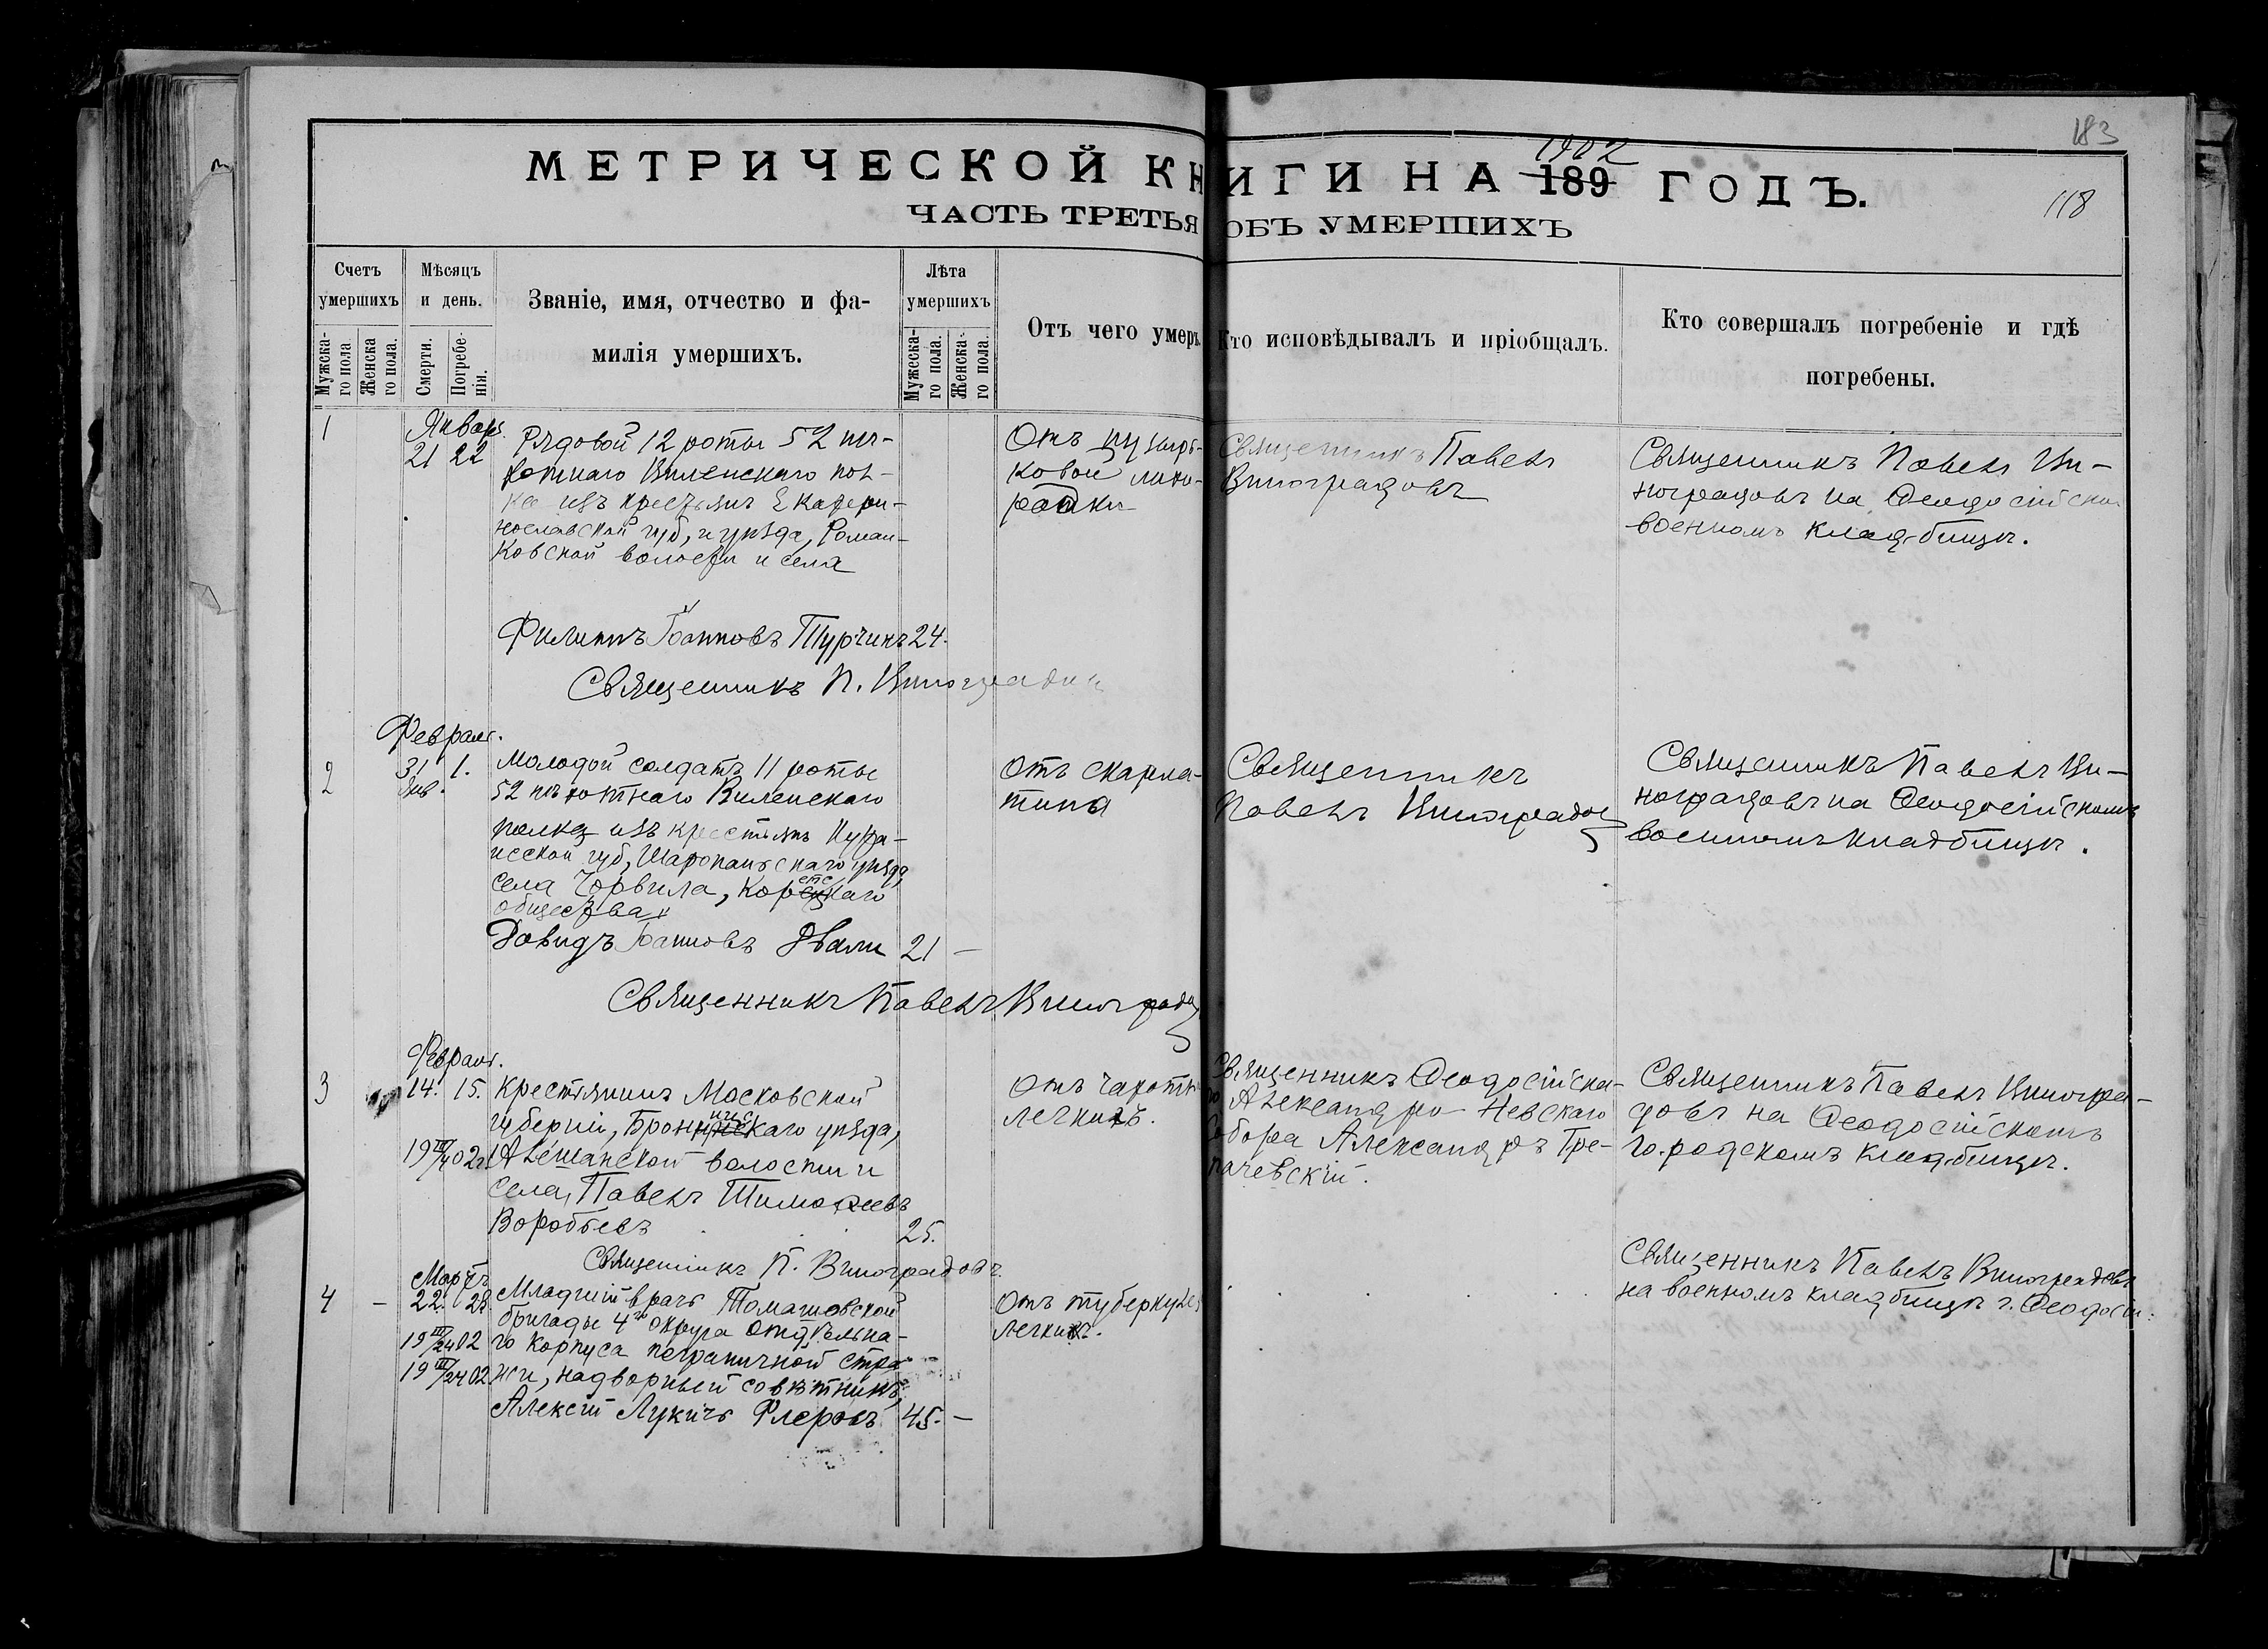 183
МЕТРИЧЕСКОЙ КНИГИ НА 1902 189 ГОДЪ.
118
ЧАСТЬ ТРЕТЬЯ ОБЪ УМЕРШИХЪ
Счетъ умершихъ
Мужска-го пола
Женска го пола.
Мѣсяцъ и день.
Смерти.
Погребе-нія.
Званіе, имя, отчество и фа-
милія умершихъ.
Лѣта умершихъ
Мужеска-го пола.
Женска-го пола.
Отъ чего умеръ.
Кто исповѣдывалъ и пріобщалъ.
Кто совершалъ погребеніе и гдѣ
погребены.
1
Январь
21 22
Рядовой 12 роты 52 пѣ-
хотнаго Виленскаго пол-
ка изъ крестьянъ Екатери-
нославской губ, и уѣзда, Роман-
ковской волости и села
Филиппъ Іоанновъ Турчинъ
24.
Отъ пузырь-
ковой лихо-
радки
Священникъ Павелъ
Виноградовъ
Священникъ Павелъ Ви-
ноградовъ на Ѳеодосійско
военномъ кладбищѣ.
Священникъ П. Виноградовъ
Февраль.
2
31 1.
Янв.
Молодой солдатъ 11 роты
52 пѣхотнаго Виленскаго
полка изъ крестьянъ Кута-
исской губ, Шаропанскаго уѣзда,
села Чорвила, Коретскаго
общества
Давидъ Іоанновъ Двали
21 —
Отъ скарла-
тина
Священникъ
Павелъ Виноградов
Священникъ Павелъ Ви-
ноградовъ на Ѳеодосійскомъ
военномъ кладбищѣ.
Священникъ Павелъ Виноградов
Февраль.
3
14. 15.
19 III/4 02 г.
Крестьянинъ Московской
губерніи, Бронницкаго уѣзда,
Алешанской волости и
села, Павелъ Тимоѳеевъ
Воробьевъ
25.
Отъ чахотки
легкихъ.
Священникъ Ѳеодосійска-
го Александро-Невскаго
Собора Александръ Тре-
пачевскій.
Священникъ Павелъ Виногра-
довъ на Ѳеодосійскомъ
городскомъ кладбищѣ.
Священникъ П. Виноградовъ.
Мартъ
4 —
22. 23.
19 III/24 02
19 III/24 02
Младшій врачъ Томашовской
бригады 4го округа Отдѣльна-
го корпуса пограничной стра-
жи, надворный совѣтникъ,
Алексій Лукичъ Флеровъ
45. —
Отъ туберкулез
легкихъ.
Священникъ Павелъ Виноградовъ
на военномъ кладбищѣ г. Ѳеодосіи.